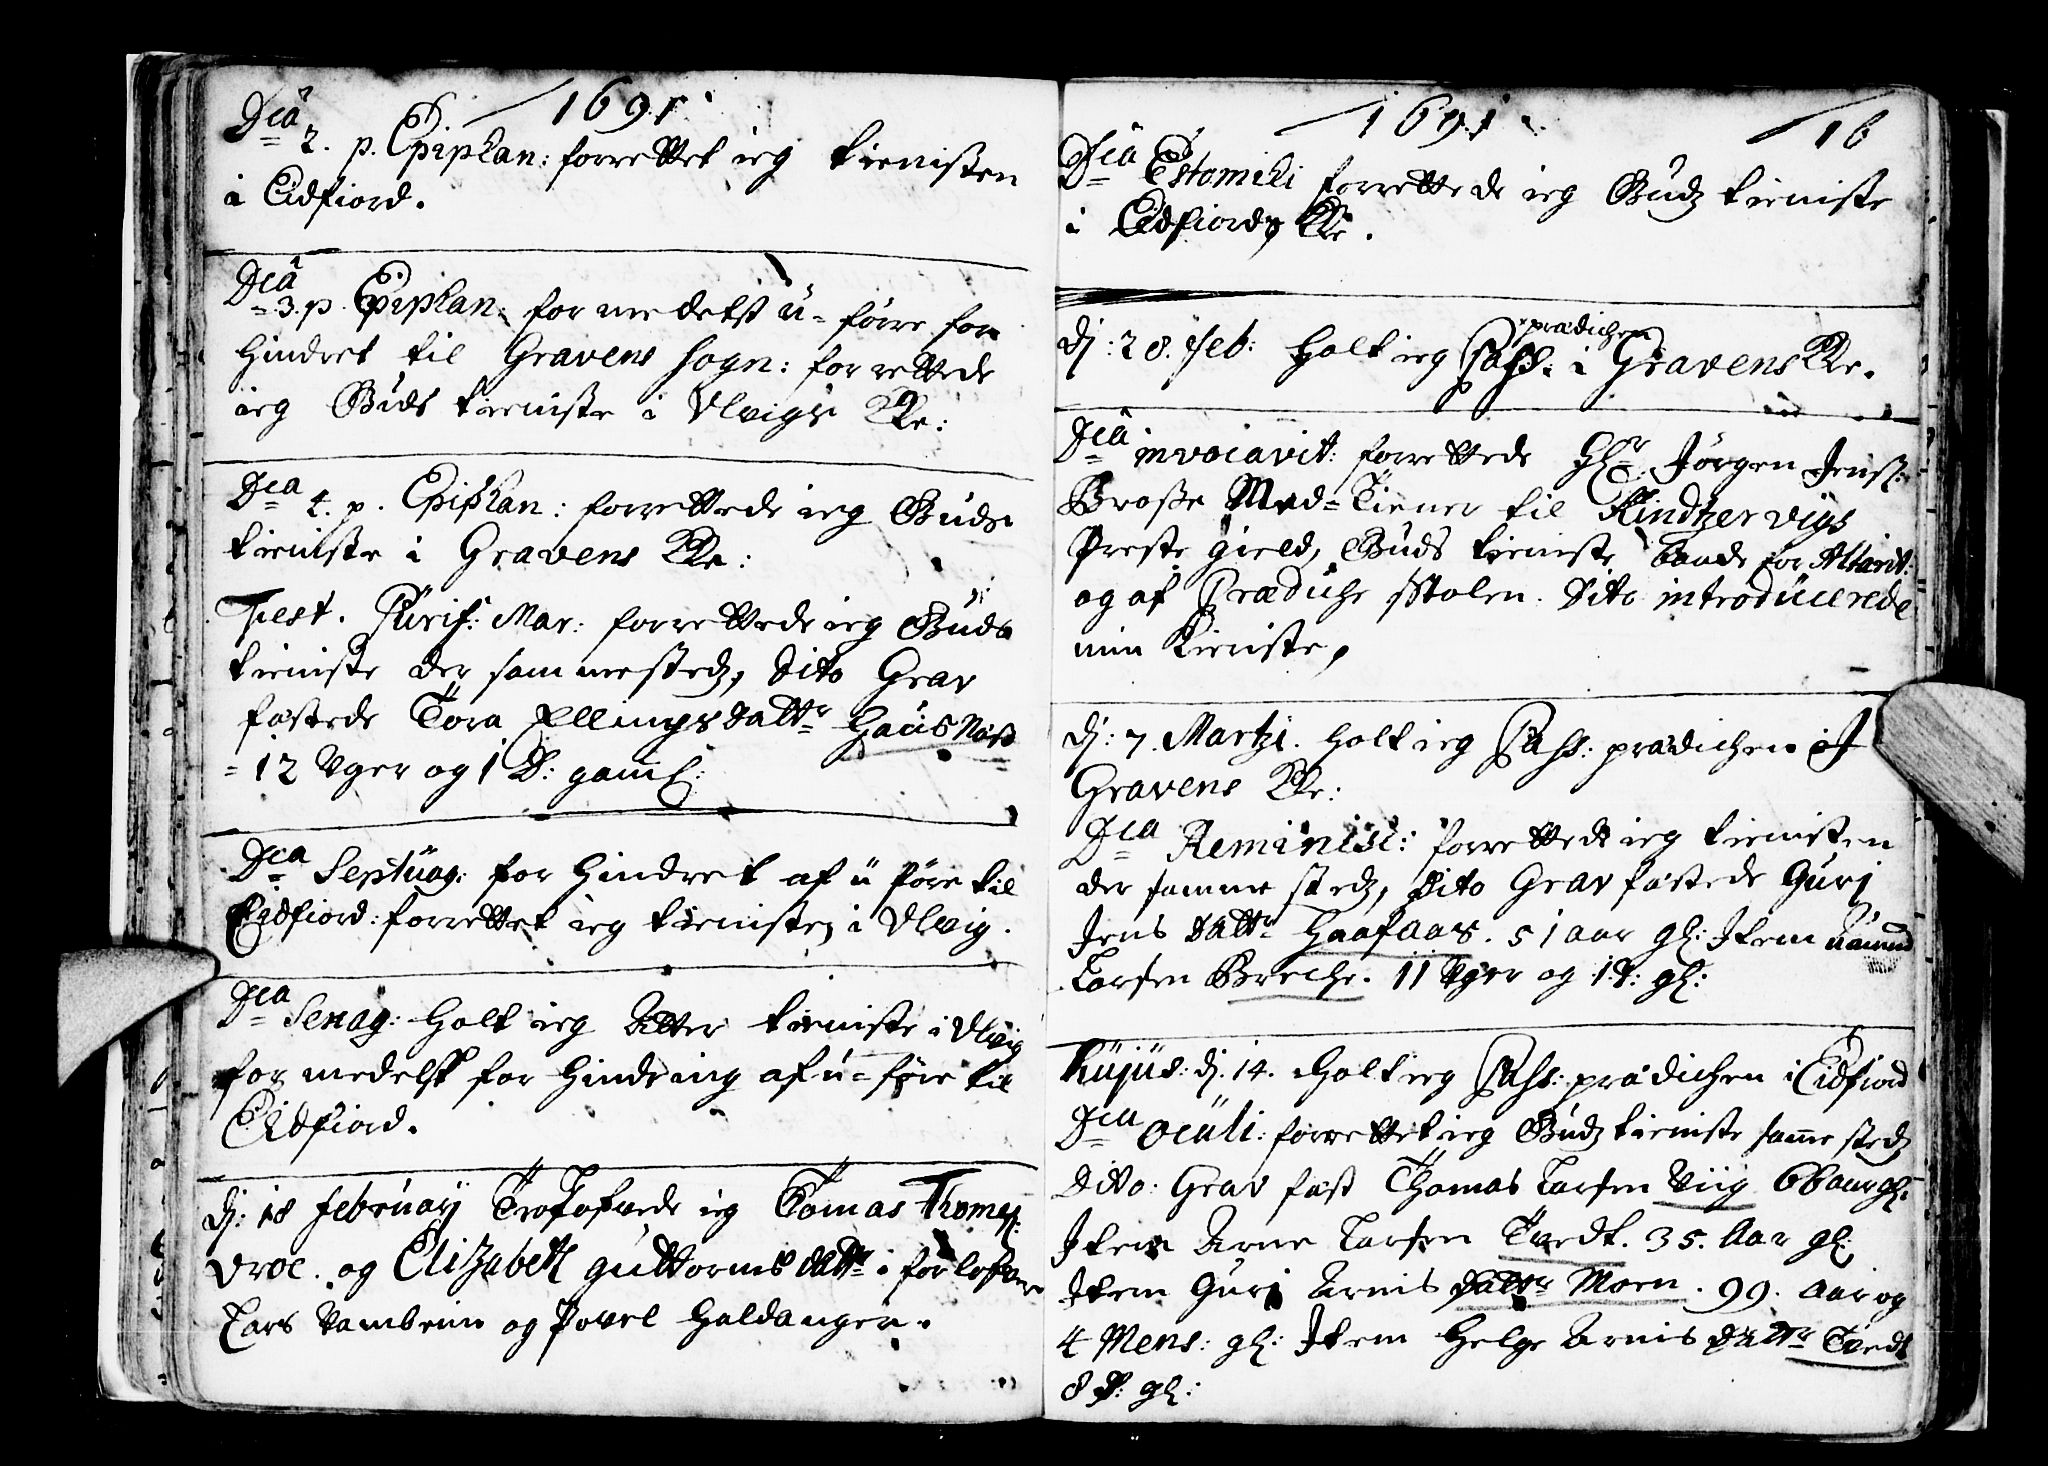 1691
Dca 2. p. Epiphan: forrettet ieg tienisten
i Eidfiord.
Dca 3. p. Epiphan: formedelst u-føre for
hindret til Gravens sogn: forrettede
ieg Guds tieniste i Ulvigs Kke:
Dca 4. p. Epiphan: forrettede ieg Guds
tieniste i Gravens Kke:
Fest. Purif: Mar: forrettede ieg Guds
tieniste der sammestedz, Dito Grav
fästede Tora Ellings dattr Haus Näss
12 Uger og 1 D: gaml:
Dca Septuag: for hindret af u føre til
Eidfiord: forrettet ieg tienisten i Ulvig.
Dca Sexag: holt ieg Atter tieniste i Ulvig
formedelst for hindring af u-føre til
Eidfiord.
Dj: 18 februarij Trolofvede ieg Tomas Thomes:
Vroe. og Elizabeth guttorms dattr i forlofvere
Lars Vambeim og Povel Haldanger.
1691
16
Dca Estomihi forrettede ieg Gudz tieniste
i Eidfiordz Kke.
Dj: 28. feb: holt ieg Pass: prædichen i Gravens Kke.
Dca invocavit: forrettede Hr: Jørgen Jens:
Brosse Med-Tiener til Kindzervigs
Preste gield, Guds tieniste baade for Altarit:
og af Prædiche Stolen. Dito introducerede
min Kieniste,
Dj: 7. Martzi. holt ieg Pass: prædichen i
Gravens Kke:
Dca Reminisc: forrettede ieg tienisten
der samme stedz, Dito Grav fästede Guri
Jens dattr Haafaas. 51 aar gl: Item Aamund
Larsen Breche. 11 Uger og 1 D: gl:
Hujus: dj. 14. holt ieg Pass: prædichen i Eidfiord
Dca Oculi: forrettet ieg Gudz tieniste samme stedz
Dito: Grav fäst Thomas Larsen Viig 66 aar gl:
Item Arne Larsen Tvedt. 35. Aar gl:
Item Guri Arnis dattr Moen. 99. aar og
4 Mens: gl: Item Helge Arnis dattr Tvedt
8 D: gl: